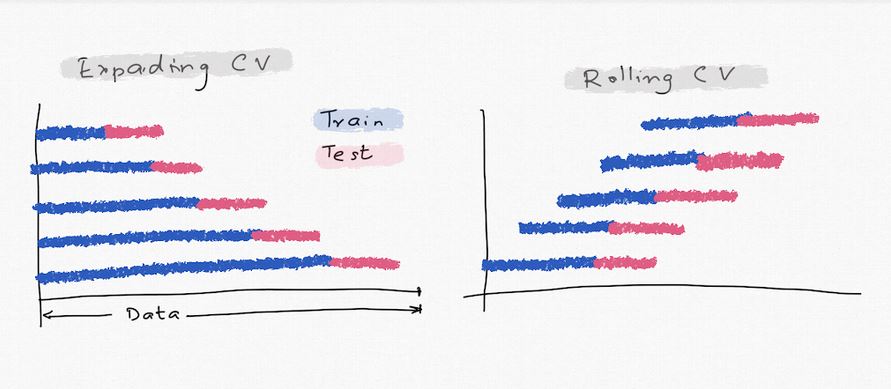 Expading CV
Train
Test
Data
Rolling CV